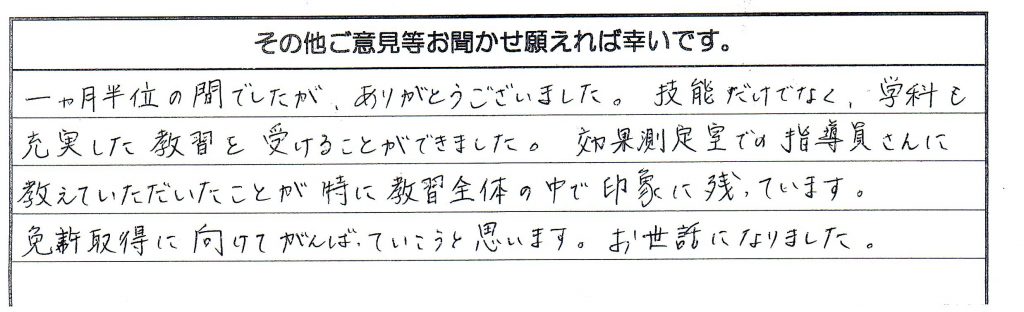 その他ご意見等お聞かせ願えれば幸いです。
一ヵ月半位の間でしたが、ありがとうございました。技能だけでなく、学科も
充実した教習を受けることができました。効果測定室での指導員さんに
教えていただいたことが特に教習全体の中で印象に残っています。
免許取得に向けてがんばっていこうと思います。お世話になりました。